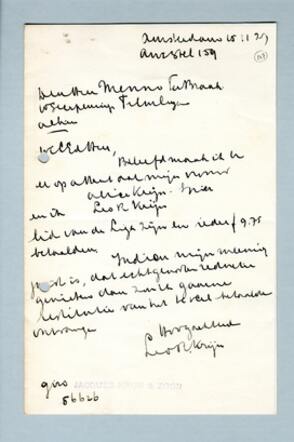 Amsterdam 15.11.27
Amstel 159
Den Heer Menno Ter Braak
Filmliga
alhier
WelEd. Heer,
Beleefd maak ik U
er op attent dat mijn vrouw
Alice Krijn-
en ik Leo R. Krijn
lid van de Liga zijn en ieder f 9.75
betaalden. Indien mijn meening
juist is, dat echtgenooten reductie
genieten dan zou ik gaarne
restitutie van het te veel betaalde
ontvangen.
Hoogachtend
Leo R. Krijn
giro
86626
JACQUES KRIJN & ZOON